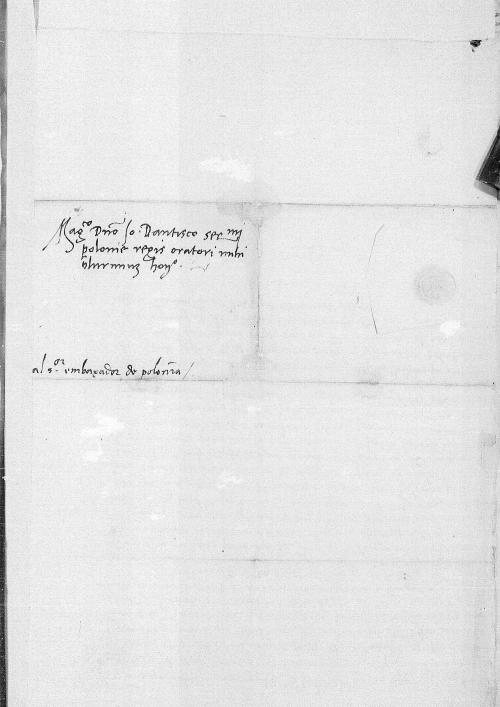 Mag^co Dn̄o Jo. Dantisco ser^mi
polonie regis oratori mihi
plurimum hon^o.
al s^or. embaxador de polonia/